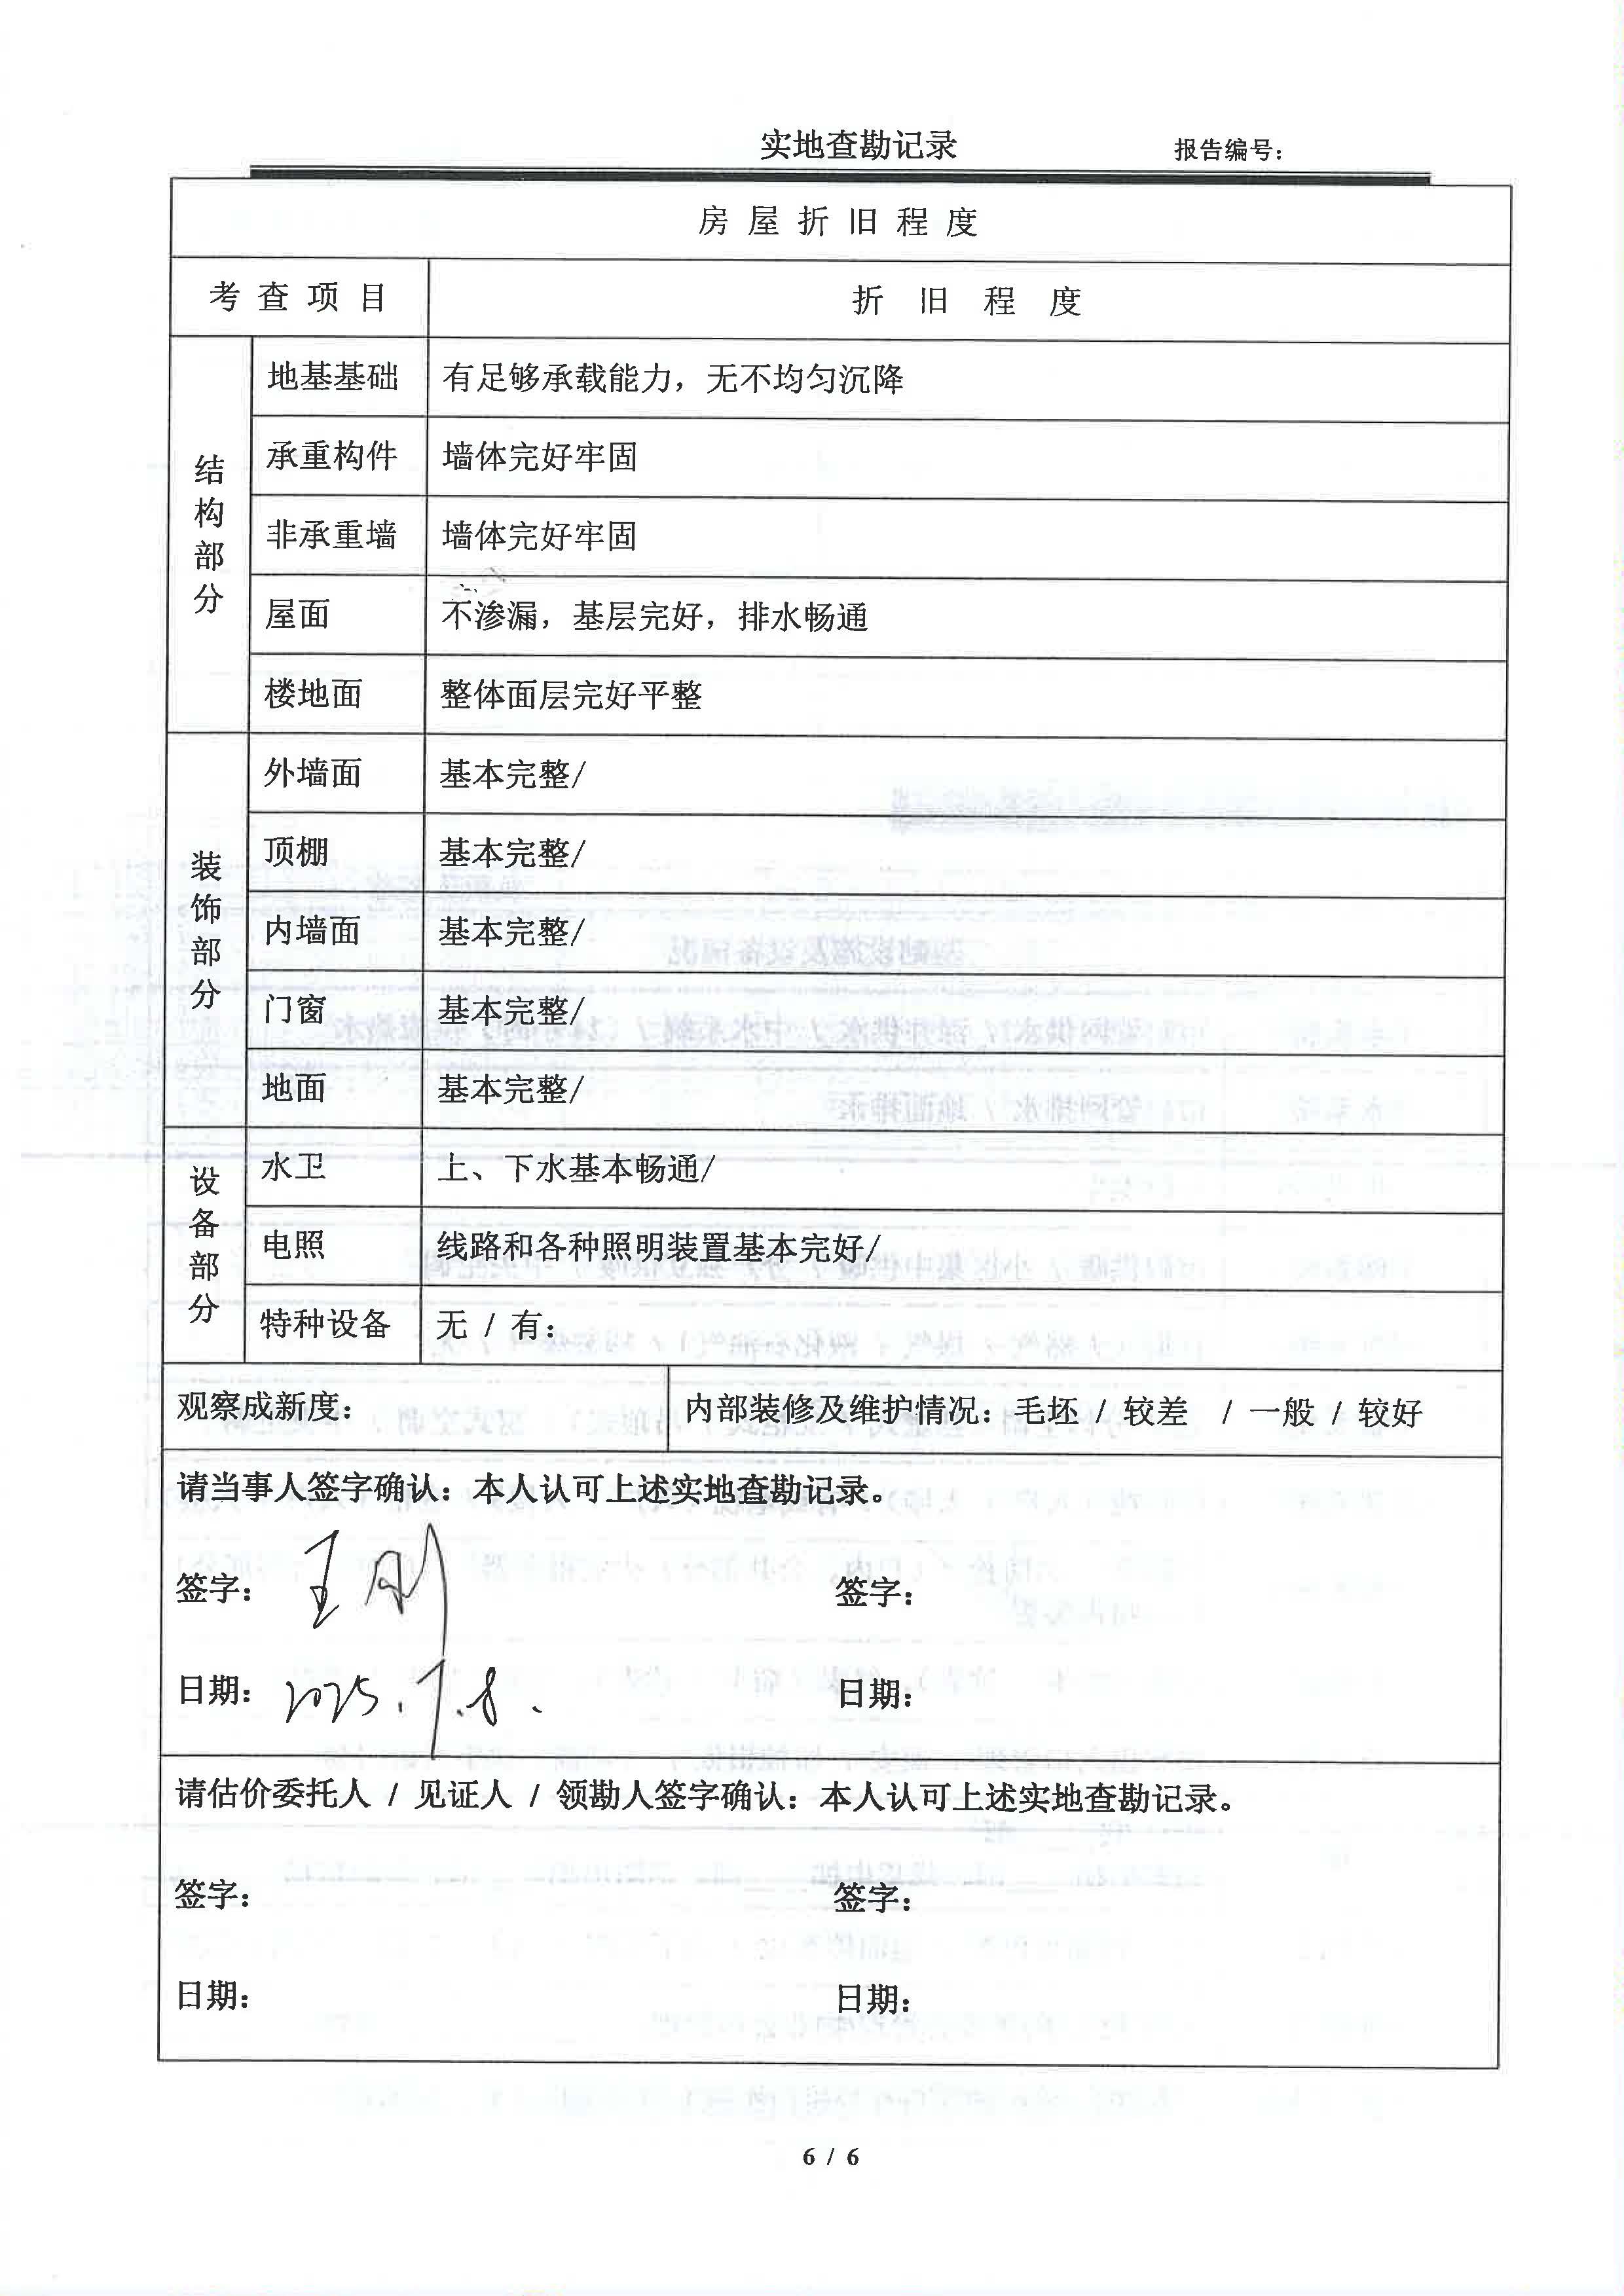 实地查勘记录 报告编号：
房屋折旧程度
考查项目 折旧程度
结构部分
地基基础 有足够承载能力，无不均匀沉降
承重构件 墙体完好牢固
非承重墙 墙体完好牢固
屋面 不渗漏，基层完好，排水畅通
楼地面 整体面层完好平整
装饰部分
外墙面 基本完整/
顶棚 基本完整/
内墙面 基本完整/
门窗 基本完整/
地面 基本完整/
设备部分
水卫 上、下水基本畅通/
电照 线路和各种照明装置基本完好/
特种设备 无 / 有：
观察成新度： 内部装修及维护情况：毛坯 / 较差 / 一般 / 较好
请当事人签字确认：本人认可上述实地查勘记录。
签字：王刚 签字：
日期：2025.7.8. 日期：
请估价委托人 / 见证人 / 领勘人签字确认：本人认可上述实地查勘记录。
签字： 签字：
日期： 日期：
6 / 6